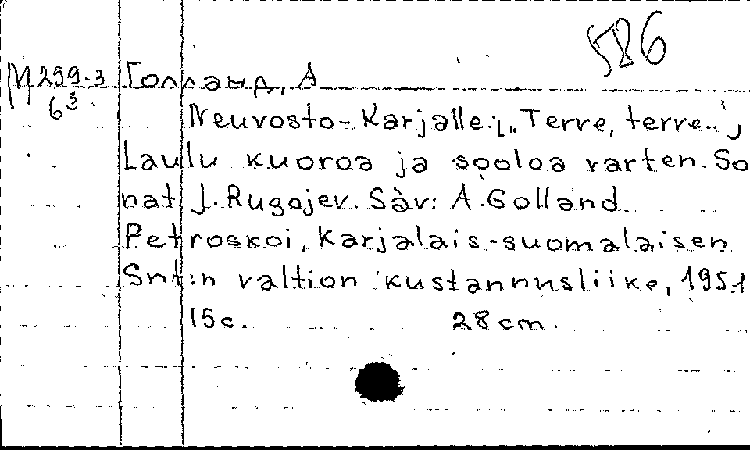 586
M 299-3 Голланд, А
6³ Neuvosto-Karjalle. [„Terve, terve..”]
Laulu kuoroa ja sooloa varten. Sa
nat J. Rugojev. Säv: A. Golland
Petroskoi, Karjalais-suomalaisen
Snt:n valtion kustannusliike, 1951
15 c. 28 cm.